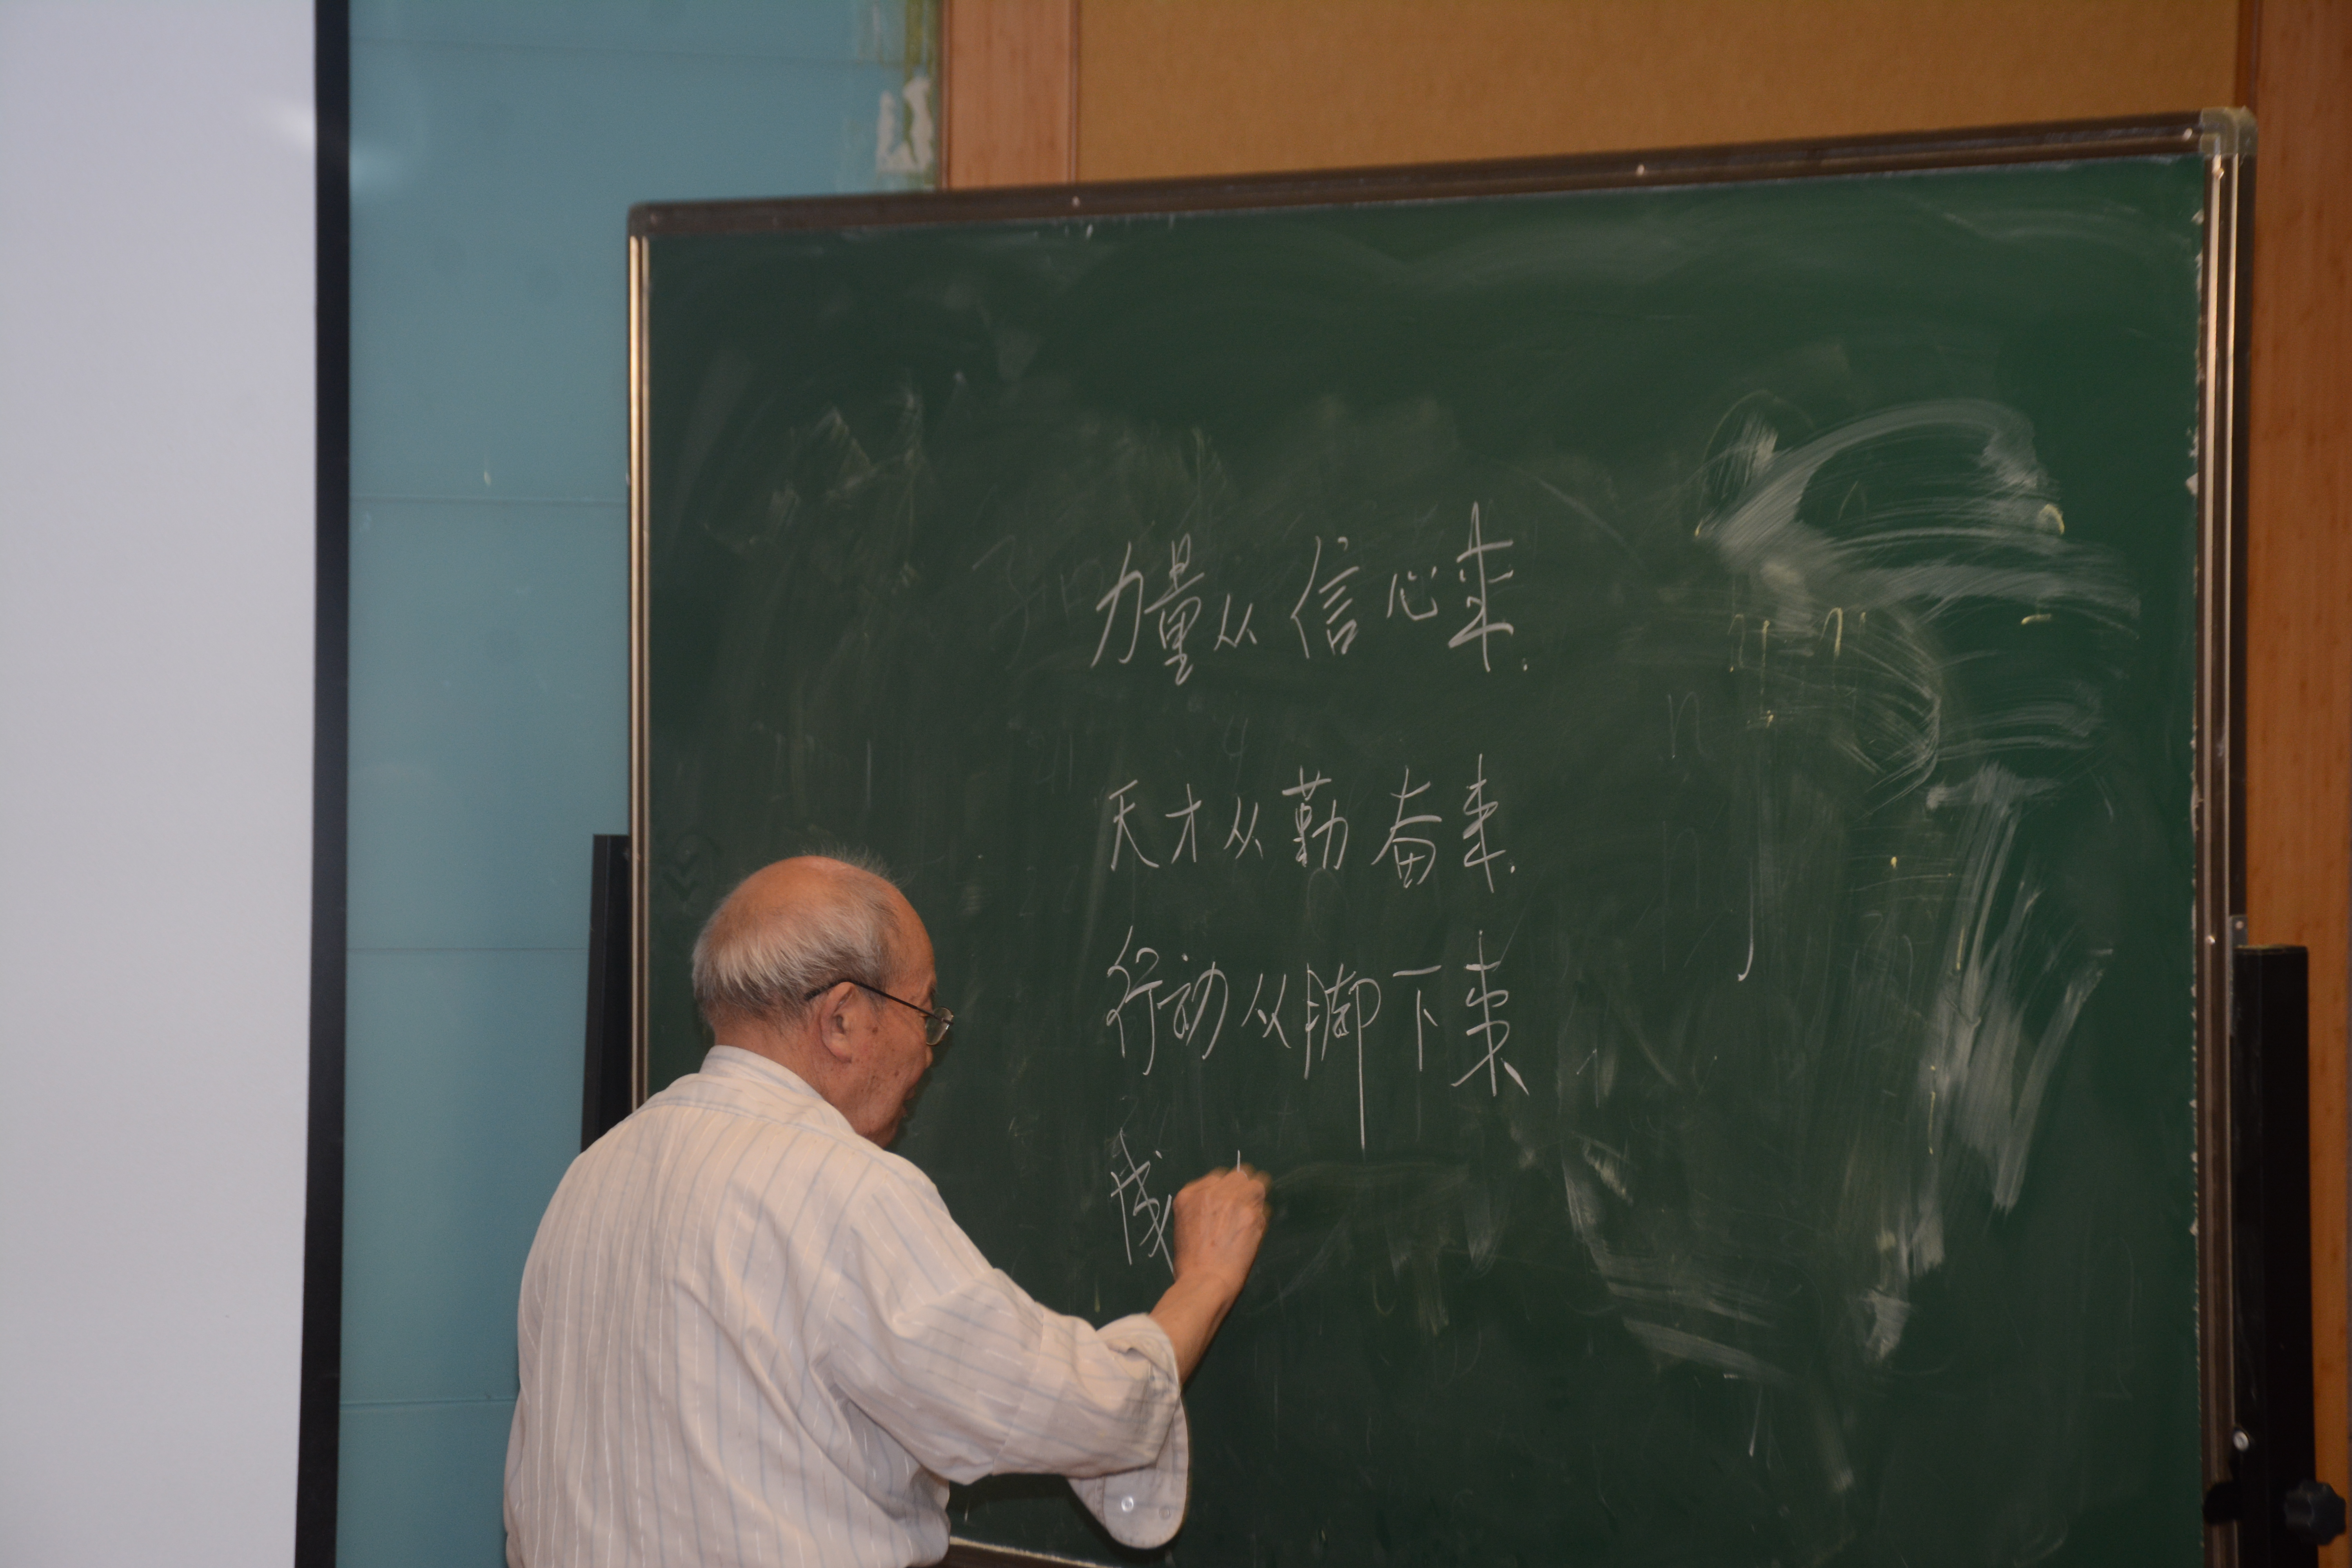 力量从信心来.
天才从勤奋来.
行动从脚下来、
成